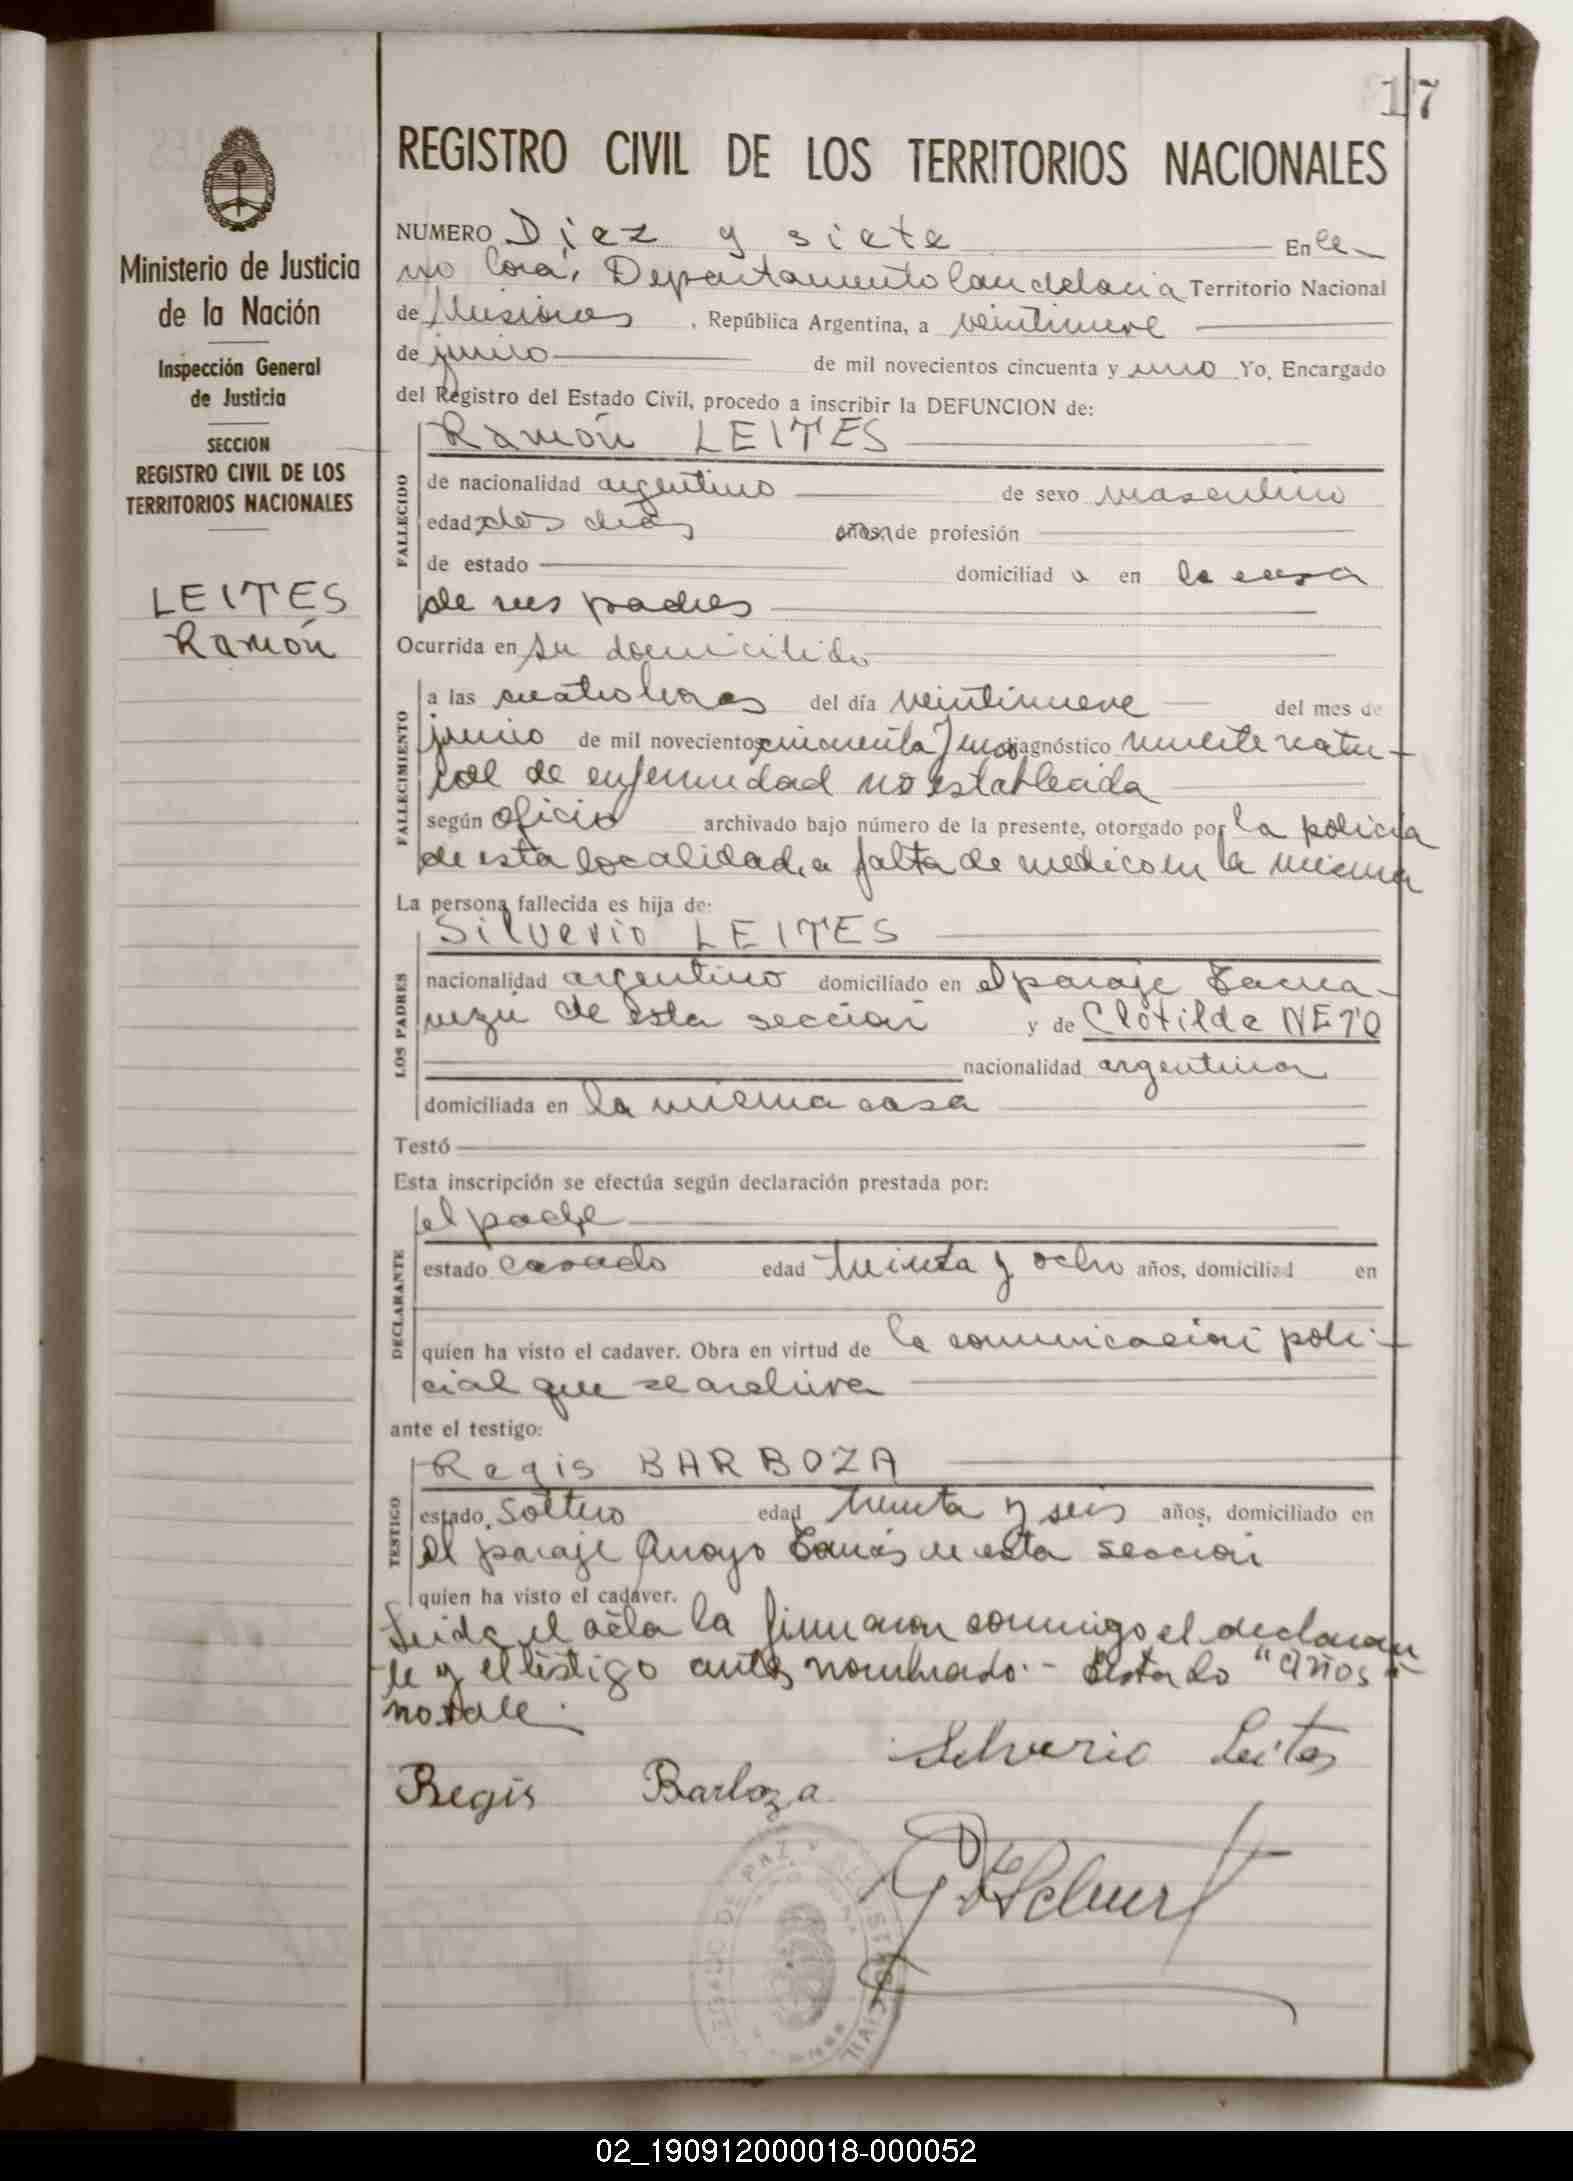 17
REGISTRO CIVIL DE LOS TERRITORIOS NACIONALES
Ministerio de Justicia
de la Nación
Inspección General
de Justicia
SECCION
REGISTRO CIVIL DE LOS
TERRITORIOS NACIONALES
LEITES
Ramón
NUMERO Diez y siete En Ce-
rro Corá, Departamento Candelaria Territorio Nacional
de Misiones, República Argentina, a veintinueve
de junio de mil novecientos cincuenta y uno Yo, Encargado
del Registro del Estado Civil, procedo a inscribir la DEFUNCION de:
Ramón LEITES
FALLECIDO
de nacionalidad argentino de sexo masculino
edad dos días años de profesión
de estado domiciliad o en la casa
de sus padres
Ocurrida en su domicilido
FALLECIMIENTO
a las cuatro horas del día veintinueve del mes de
junio de mil novecientos cincuenta y uno diagnóstico muerte natu-
ral de enfermedad no establecida
según oficio archivado bajo número de la presente, otorgado por la policia
de esta localidad, a falta de medico en la misma
La persona fallecida es hija de:
Silverio LEITES
LOS PADRES
nacionalidad argentino domiciliado en el paraje
de esta sección y de Clotilde NETO
nacionalidad argentina
domiciliada en la misma casa
Testó
Esta inscripción se efectúa según declaración prestada por:
el padre
DECLARANTE
estado casado edad treinta y ocho años, domiciliad en
quien ha visto el cadaver. Obra en virtud de la comunicación poli-
cial que se archiva
ante el testigo:
Regis BARBOZA
TESTIGO
estado soltero edad treinta y seis años, domiciliado en
el paraje Arroyo Tomás de esta sección
quien ha visto el cadáver.
Leida el acta la firmaron conmigo el declaran
te y el testigo antes nombrado.- Testado "años"
no vale.
Silverio Leites
Regis Barboza
JUZGADO DE PAZ Y REGISTRO CIVIL
02_190912000018-000052